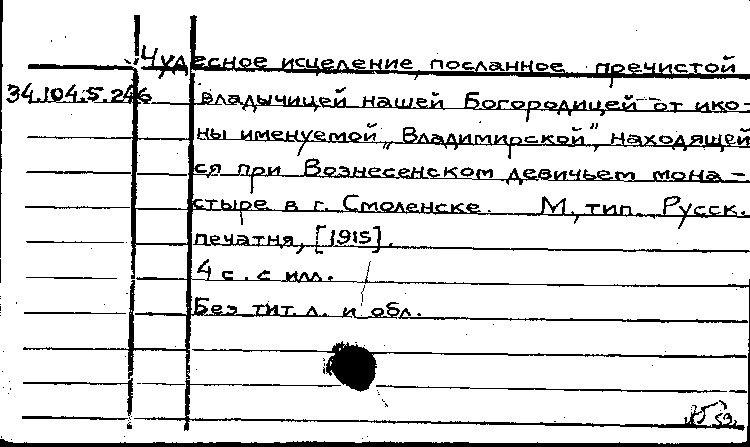 Чудесное исцеление, посланное пречистой
34.104.5.246 владычицей нашей Богородицей от ико-
ны именуемой „Владимирской", находящей
ся при Вознесенском девичьем мона-
стыре в г. Смоленске. М., тип. Русск.
печатня, [1915].
4 с. с илл.
Без тит. л. и обл.